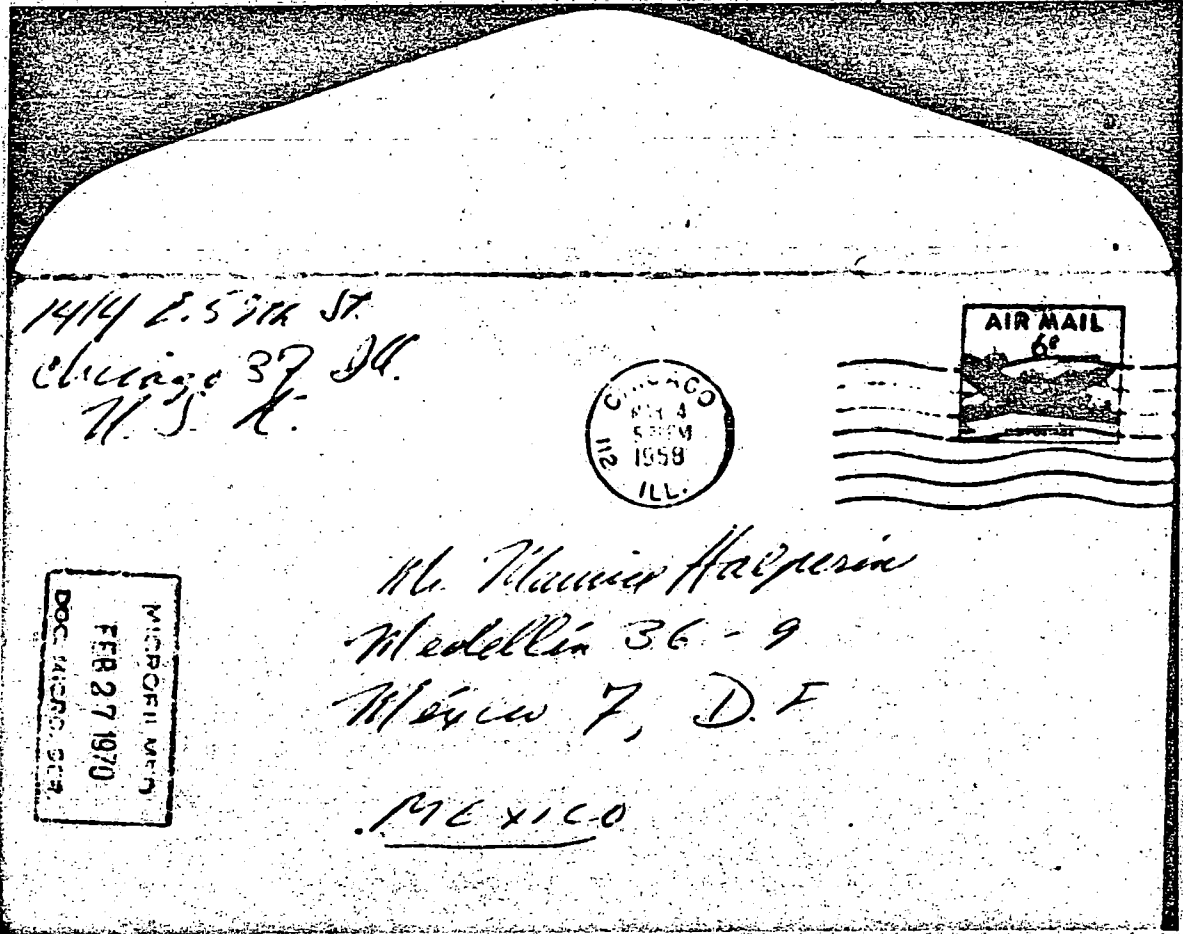 1414 E. 59th St.
Chicago 37 Ill.
U. S. A.
CHICAGO
4
PM
1958
112
ILL.
AIR MAIL
6¢
Mr. Maurice Halperin
Medellín 36 - 9
México 7, D. F
MEXICO
MICROFILMED
FEB 27 1970
DOC. MICRO. SER.